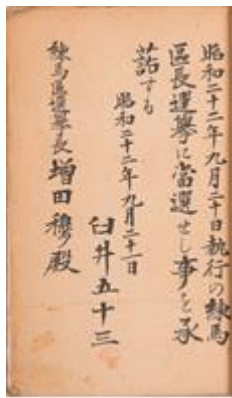 昭和二十二年九月二十日執行の練馬
區長選擧に當選せし事を承
諾する
昭和二十二年九月二十一日
臼井五十三
練馬區選擧長 増田穆殿